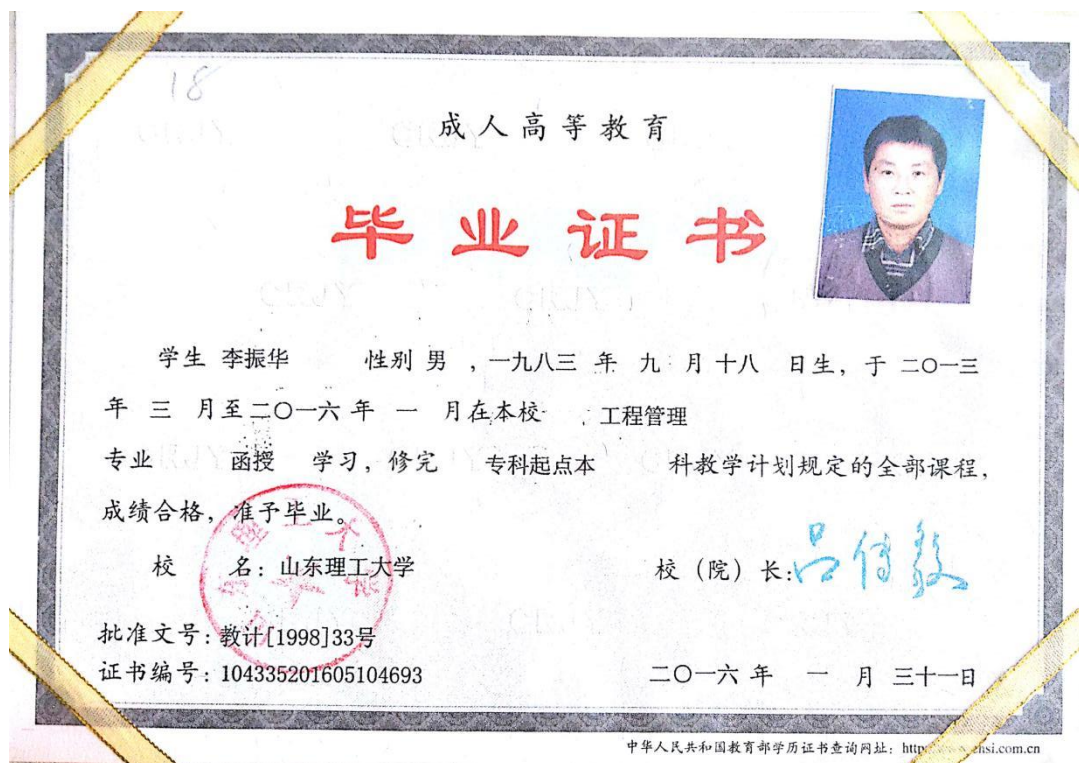 18
成人高等教育
毕业证书
学生 李振华 性别 男 ，一九八三 年 九 月 十八 日生，于 二〇一三
年 三 月至 二〇一六 年 一 月在本校 工程管理
专业 函授 学习，修完 专科起点本 科教学计划规定的全部课程，
成绩合格，准予毕业。
校 名：山东理工大学
校（院）长：吕传毅
批准文号：教计[1998]33号
证书编号：104335201605104693
二〇一六 年 一 月 三十一日
中华人民共和国教育部学历证书查询网址：http://www.chsi.com.cn